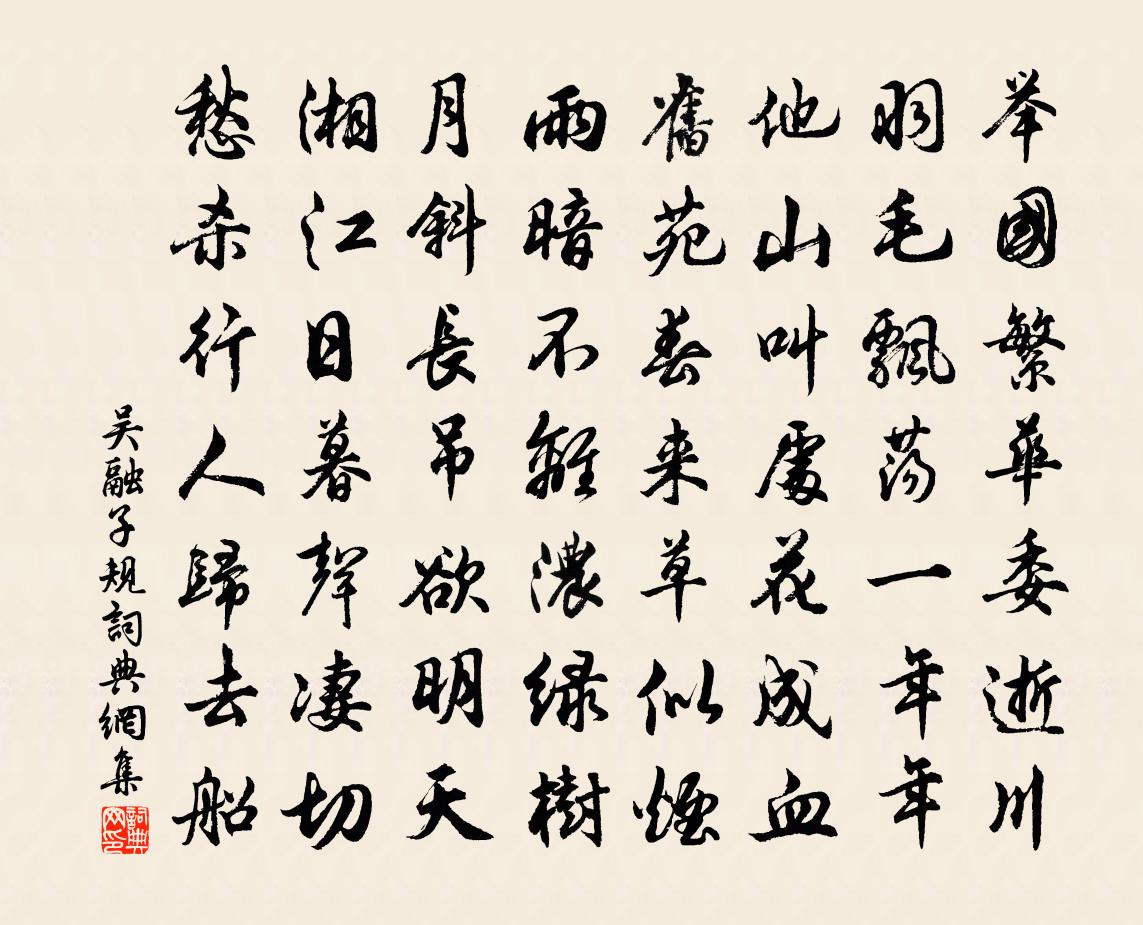 举國繁華委逝川
羽毛飄荡一年年
他山叫處花成血
舊苑春来草似煙
雨暗不離濃绿樹
月斜長吊欲明天
湘江日暮聲凄切
愁杀行人歸去船
吴融子規詞典網集
詞典网印